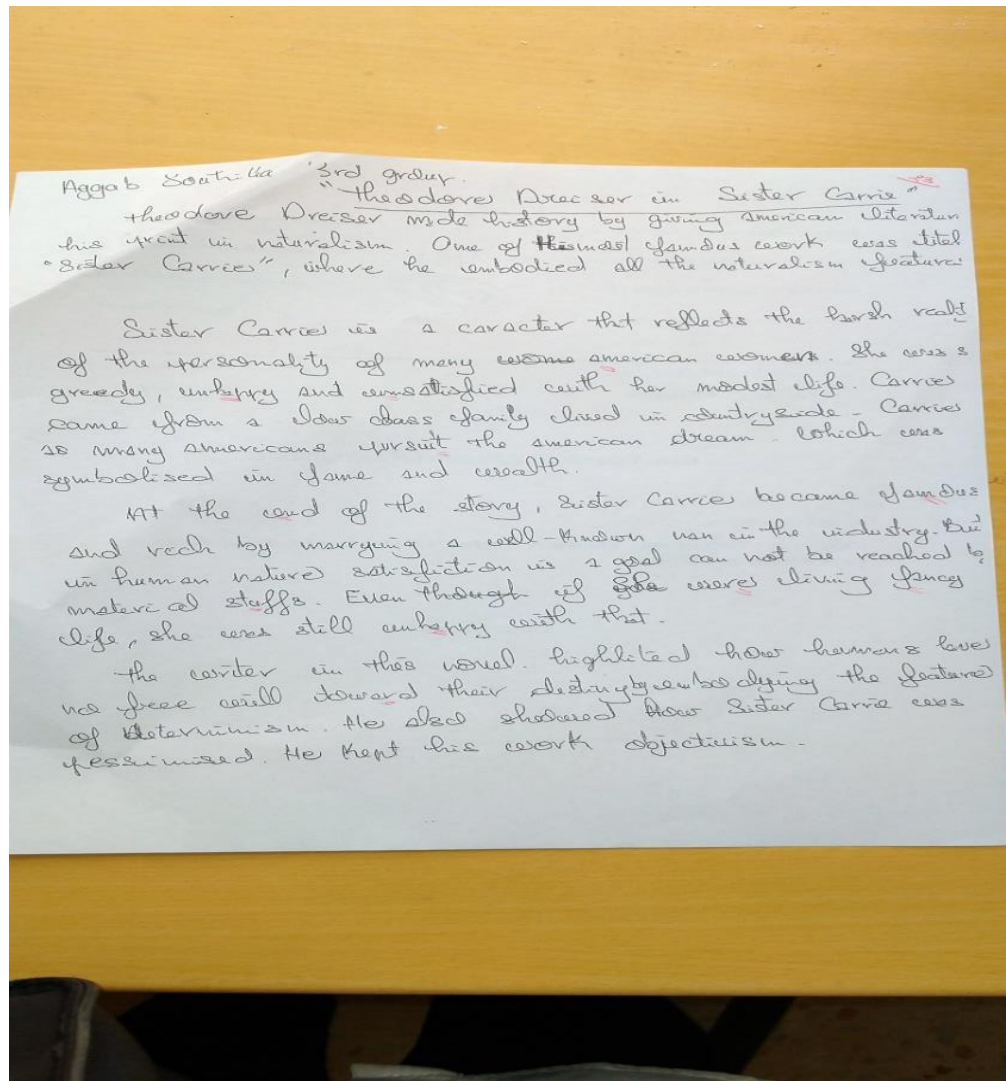 Aggab 3rd group.
"Theodore Dreiser in Sister Carrie"
theodore Dreiser mde history by giving american literatur
his print in naturalism. One of His most famous work was titel
"Sister Carrie", where he embodied all the naturalism feature
Sister Carrie is a caracter tht reflects the harsh realt
of the personality of many wome american women. She was a
greedy, unhappy and unsatisfied with her modest life. Carrie
came from a low class family lived in countryside. Carrie
as many americans pursuit the american dream. Which was
symbolised in fame and wealth.
At the end of the story, Sister Carrie became famous
and rech by marrying a well-known man in the industry. But
in human nature satisfiction is a goal can not be reached b
material stuffs. Even though if She were living fancy
life, she was still unhappy with that.
the writer in this novel. highlited how humans have
no free will toward their destiny by embodying the feature
of determinism. He also showed how Sister Carrie was
pessimised. He kept his work objectivism.